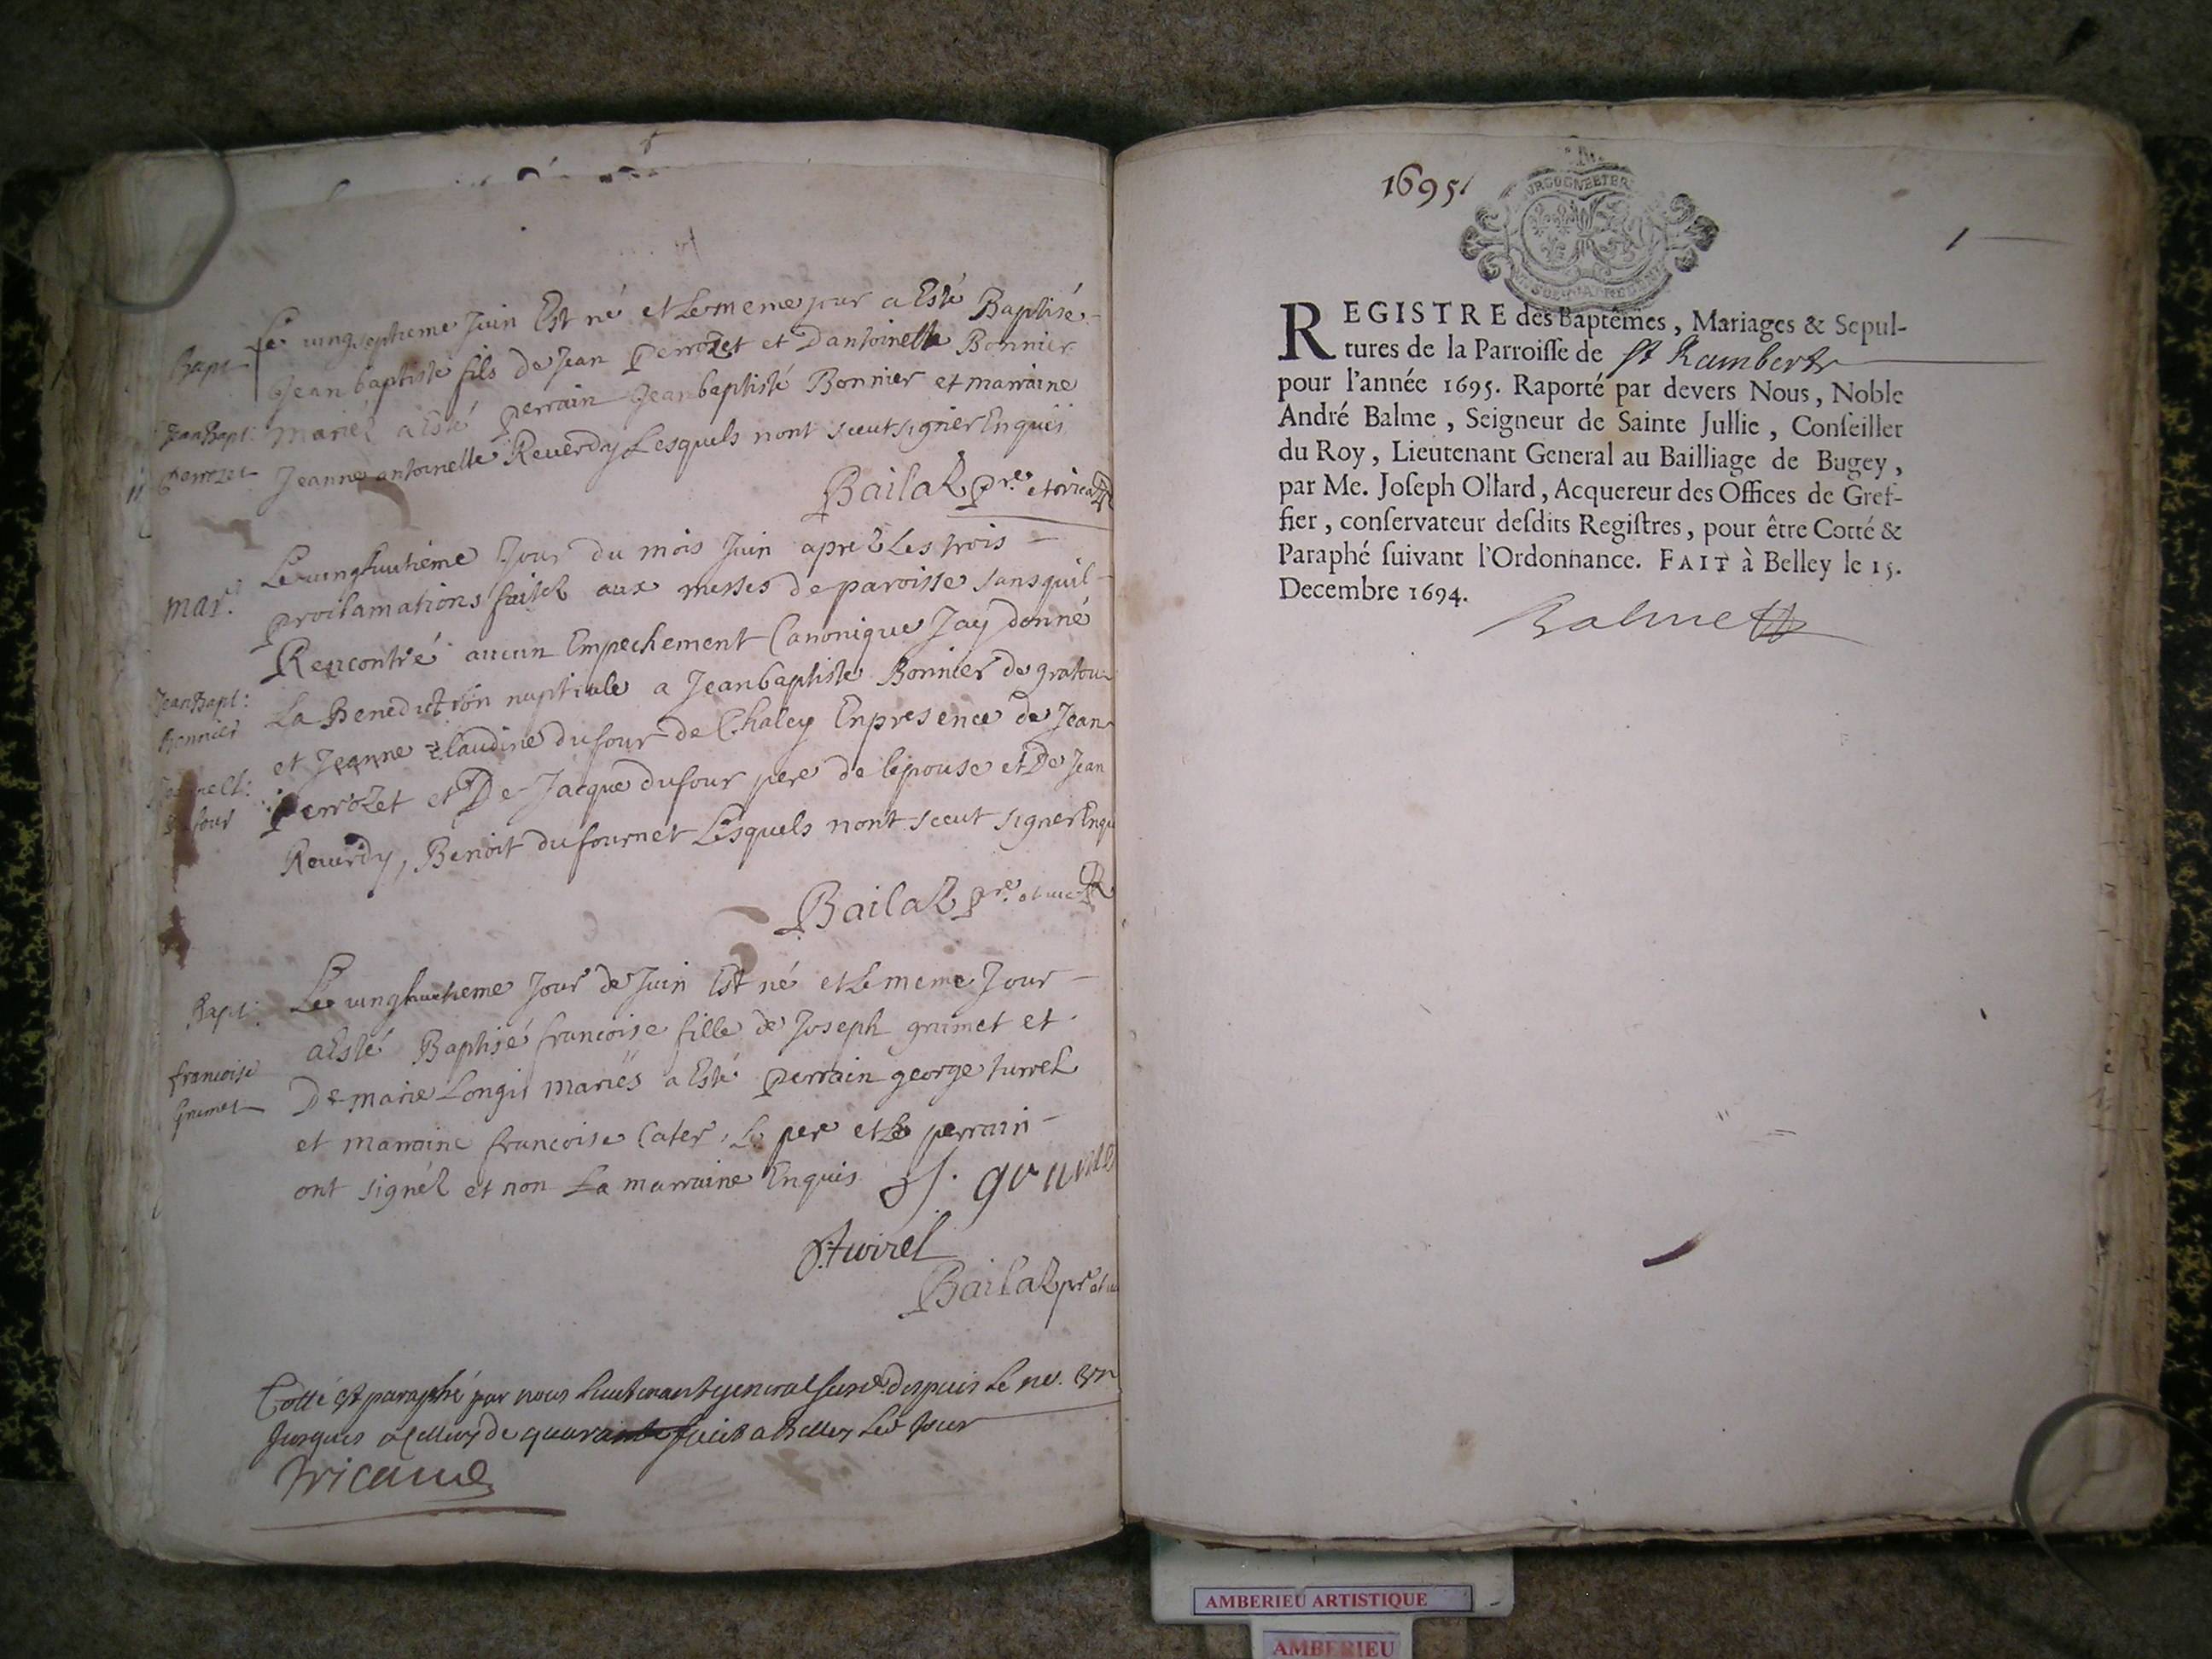 Bapt
Jean Bapt:
perrozet
Le vingseptieme Juin Est né et Le meme jour a Esté Baptisé
Jean baptiste fils de Jean perrozet et Dantoinette Bonnier
mariéz a Esté perrain Jean baptisté Bonnier et marraine
Jeanne antoinette Reuerdy Lesquels nont sceut signier Enquis
Bailaz pre et vicai
mar.
Jean Bapt:
Bonnier
Le vinghuitiéme Jour du mois Juin aprez Les trois
proclamations faitez aux messes de paroisse sans quil
Rencontré aucun Empechement Canonique Jay donné
La Benediction nuptiale a Jean baptiste Bonnier de gratoux
et Jeanne claudine dufour de Chaley En presence de Jean
perrozet et De Jacque dufour pere de lepouse et De Jean
Reuerdy, Benoit dufournet Lesquels nont sceut signer Enqu
Bailaz pre et uic
Bapt:
francoise
Grumet
Le vinghuetieme Jour de Juin Est né et Le meme Jour
a Esté Baptisé francoise fille de Joseph grumet et
De marie Longis mariés a Esté perrain george turrel
et marraine francoise Cater, Le per et Le perrain
ont signéz et non La marraine Enquis J. grumet
turrel
Bailaz pre et u
Cotté et paraphé par nous Lieutenant general depuis Le
Jusques a Celluy de quarante faict a Belley Led Jour
Tricaud
1695
1
REGISTRE des Baptêmes, Mariages & Sepul-
tures de la Parroisse de St Rambert
pour l'année 1695. Raporté par devers Nous, Noble
André Balme, Seigneur de Sainte Jullie, Conseiller
du Roy, Lieutenant General au Bailliage de Bugey,
par Me. Joseph Ollard, Acquereur des Offices de Gref-
fier, conservateur desdits Registres, pour être Cotté &
Paraphé suivant l'Ordonnance. FAIT à Belley le 15.
Decembre 1694.
Balme
AMBERIEU ARTISTIQUE
AMBERIEU